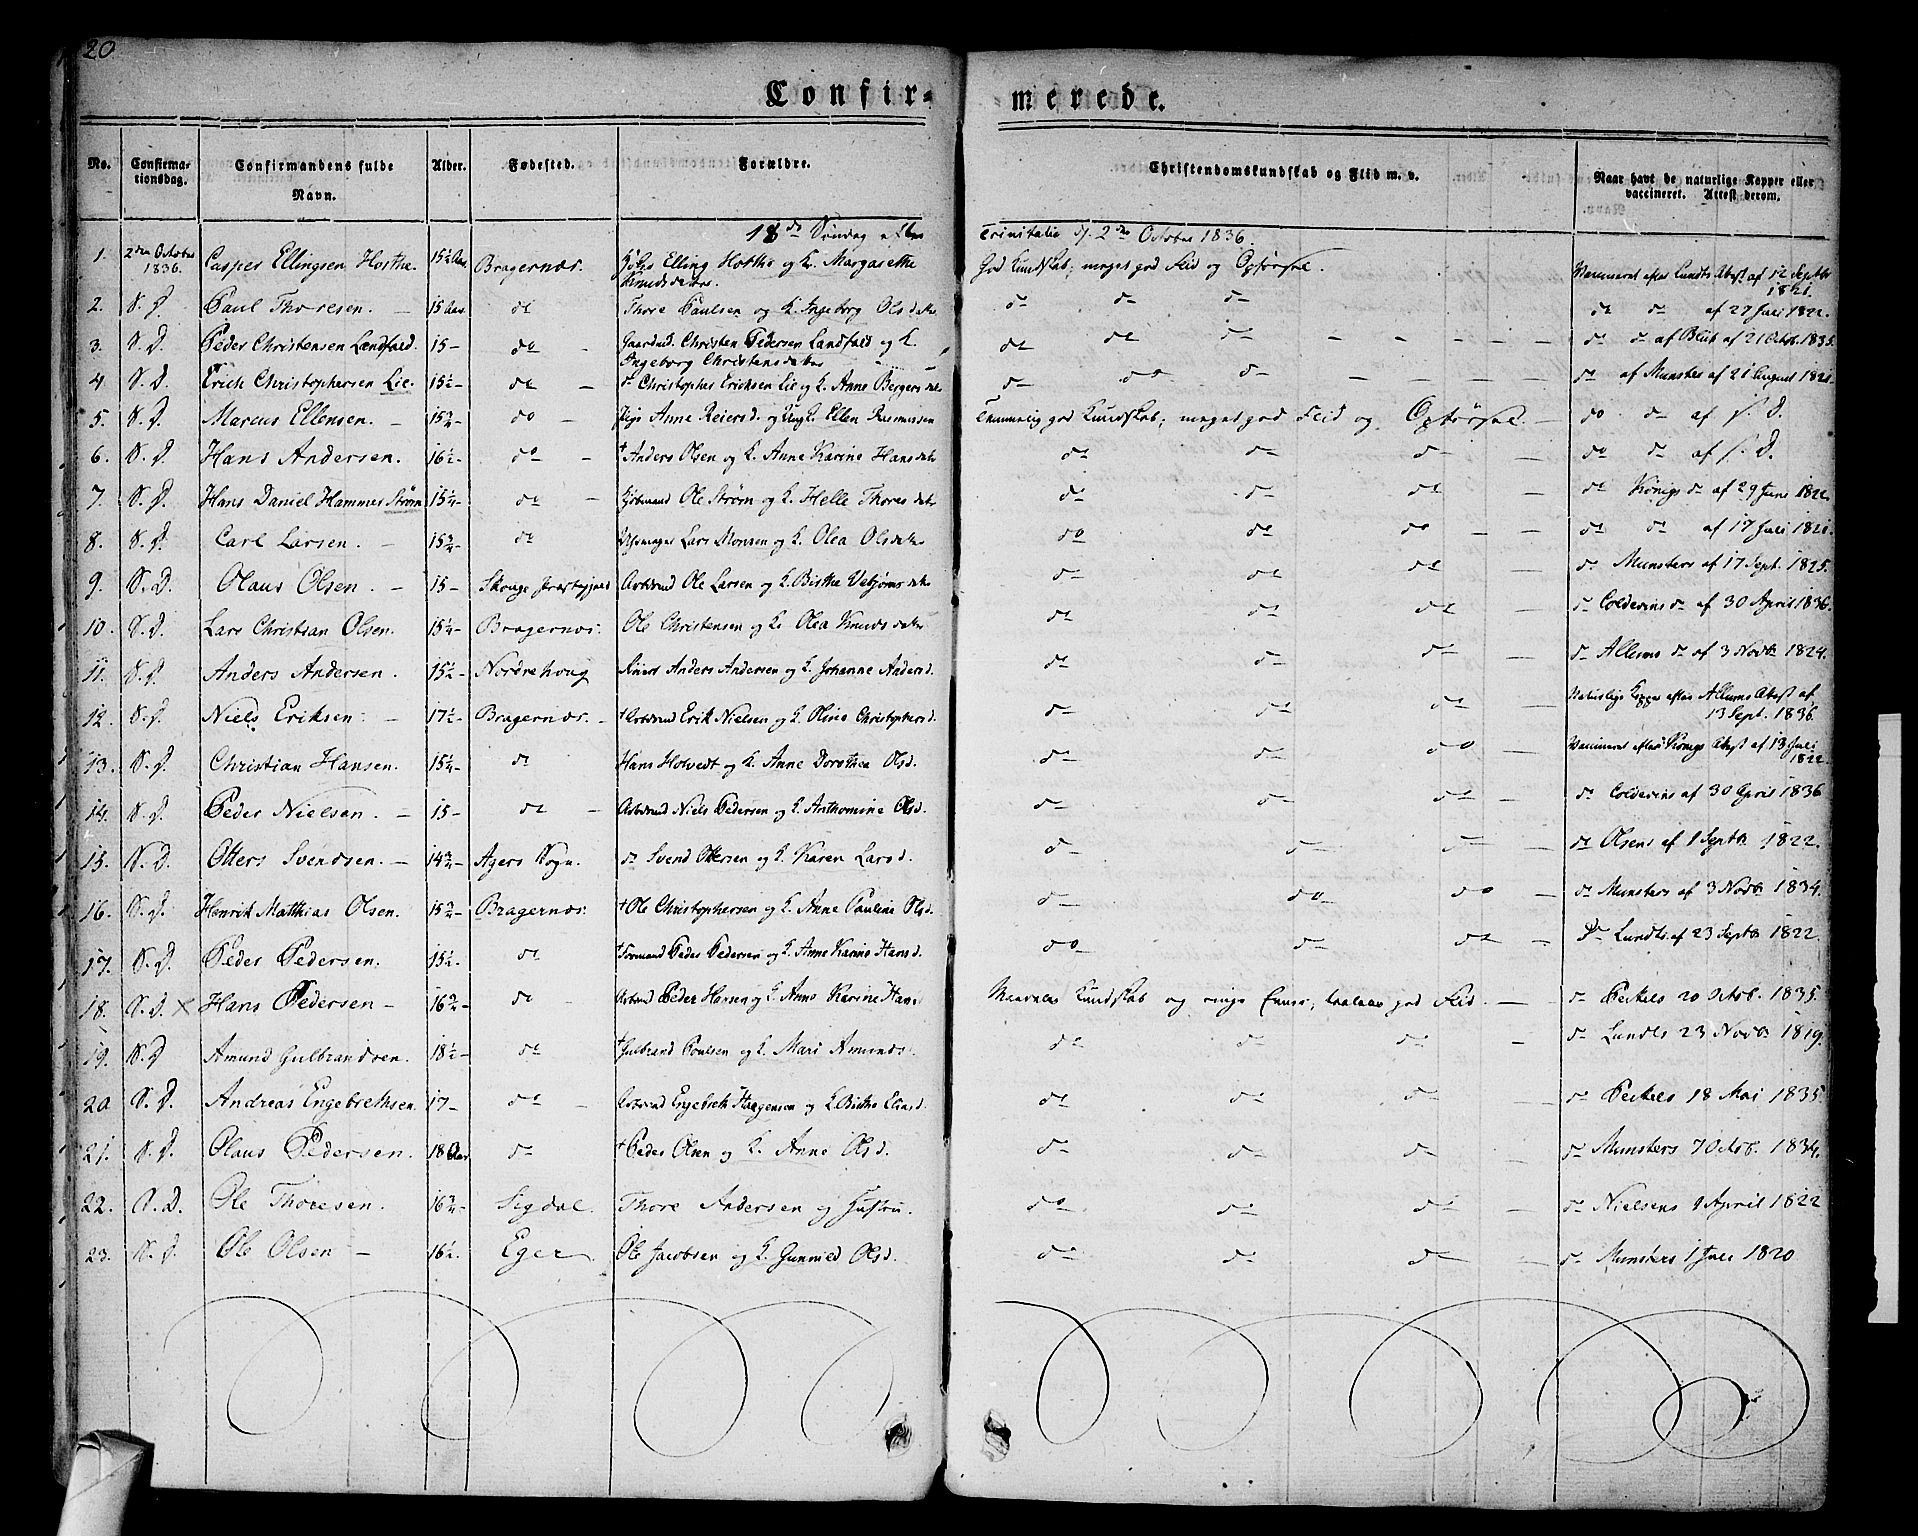 20.
Confir- merede.
No. Confirmationsdag. Confirmandens fulde Navn. Alder. Fødested. Forældre. Christendomskundskab og Flid m. v. Naar havt de naturlige Kopper eller vaccineret. Attest derom.
18de Søndag efter Trinitatis d. 2den October 1836.
1. 2den October 1836. Casper Ellingsen Hotthe 15½ Aar Bragernæs. Elling Hotthe og K. Margarethe Knudsdatter God Kundskab; meget god Flid og Opførsel. Vaccineret efter Lundts Attest af 12 Septbr 1821.
2. S. D. Paul Thoresen. 15 Aar do Thore Paulsen og K. Ingeborg Olsdatter do do do do do af 27 Juli 1822.
3. S. D. Peder Christensen Landfald. 15 - do - Gaardmd. Christen Pedersen Landfald og K. Ingeborg Christensdatter do do do - - - - do do af 21 Octob. 1835.
4. S. D. Erich Christophersen Lie. 15½ - do - do Christopher Ericksen Lie og K. Anne Bergersdatter do do do - - - - do af Munster af 21 August 1821.
5. S. D. Marcus Ellensen. - 15¾ - do - Pige Anne Reiersd. og Ungk. Ellen Rasmussen Temmelig god Kundskab; meget god Flid og Opførsel - do do af S. D.
6. S. D. Hans Andersen. 16½ - do - † Anders Olsen og K. Anne Karine Hansdatter do do do - do do af S. D.
7. S. D. Hans Daniel Hammer Strøm 15¼ - do - Kjøbmand Ole Strøm og K. Helle Thoresdatter do do do - do Königs do af 29 Juni 1822.
8. S. D. Carl Larsen. - 15¾ - do Lars Monsen og K. Olea Olsdatter do do do - - do do af 17 Juli 1821.
9. S. D. Olaus Olsen. - 15 - Skouge Præstegjeld Arbmd Ole Larsen og K. Birthe Vebjørnsdatter do do do - do Munsters af 17 Sept. 1825.
10. S. D. Lars Christian Olsen. 15¼ - Bragernæs. Ole Christensen og K. Olea Knudsdatter do do do - do Colderins do af 30 April 1836.
11. S. D. Anders Andersen. 15½ - Nordrehoug Anders Andersen og K. Johanne Andersd. do do do - do Allums do af 3 Novbr 1824.
12. S. D. Niels Eriksen. - 17½ - Bragernæs. - † Arbmd Erik Nielsen og K. Oline Christophersd. do do do - Naturlige Kopper efter Allums Attest af 13 Sept. 1836.
13. S. D. Christian Hansen. 15¼ - do Hans Holvedt og K. Anne Dorothea Olsd. do do do - Vaccineret efter Königs Attest af 13 Juli 1822.
14. S. D. Peder Nielsen. - 15 - do - Arbmd Niels Pedersen og K. Anthomine Olsd. do do do - do Colderins af 30 April 1836
15. S. D. Otters Svendsen. - 14¾ - Agers Sogn. do Svend Ottersen og K. Karen Larsd. do do do - do Olsens af 1 Septbr 1822.
16. S. D. Henrik Matthias Olsen. 15¾ - Bragernæs. † Ole Christophersen og K. Anne Pauline Olsd. do do do - do Munsters af 3 Novbr 1834.
17. S. D. Peder Pedersen. 15½ - do - † Peder Pedersen og K. Anne Karine Hansd. do do do - Do Lundts af 23 Septbr 1822.
18. S. D. × Hans Pedersen - 16¾ - do - Arbmd Peder Hansen og K. Anne Karine Hansd. Maadelig Kundskab og ringe god Flid. - - do Peckels 20 Octob. 1835.
19. S. D Amund Gulbrandsen. 18½ - do † Gulbrand Poulsen og K. Mari Amunds: do do do - do Lundts 23 Novbr 1819.
20 S. D. Andreas Engebrethsen. 17 - do - Arbmd Engebreth Haagensen og K. Birthe Eliasd. do do do - - do Peckels 18 Mai 1835.
21. S. D. Olaus Pedersen. 18 Aar do † Peder Olsen og K. Anne Olsd. do do do - - do Munsters 7 Octob. 1834.
22. S. D. Ole Thoresen. 16¾ - Sigdal. Thore Andersen og Hustru. do do do - - do Nielsens 9 April 1822
23. S. D. Ole Olsen - 16½. Eger Ole Jacobsen og K. Gunnild Olsd. do do do - do Munsters 1 Juli 1820